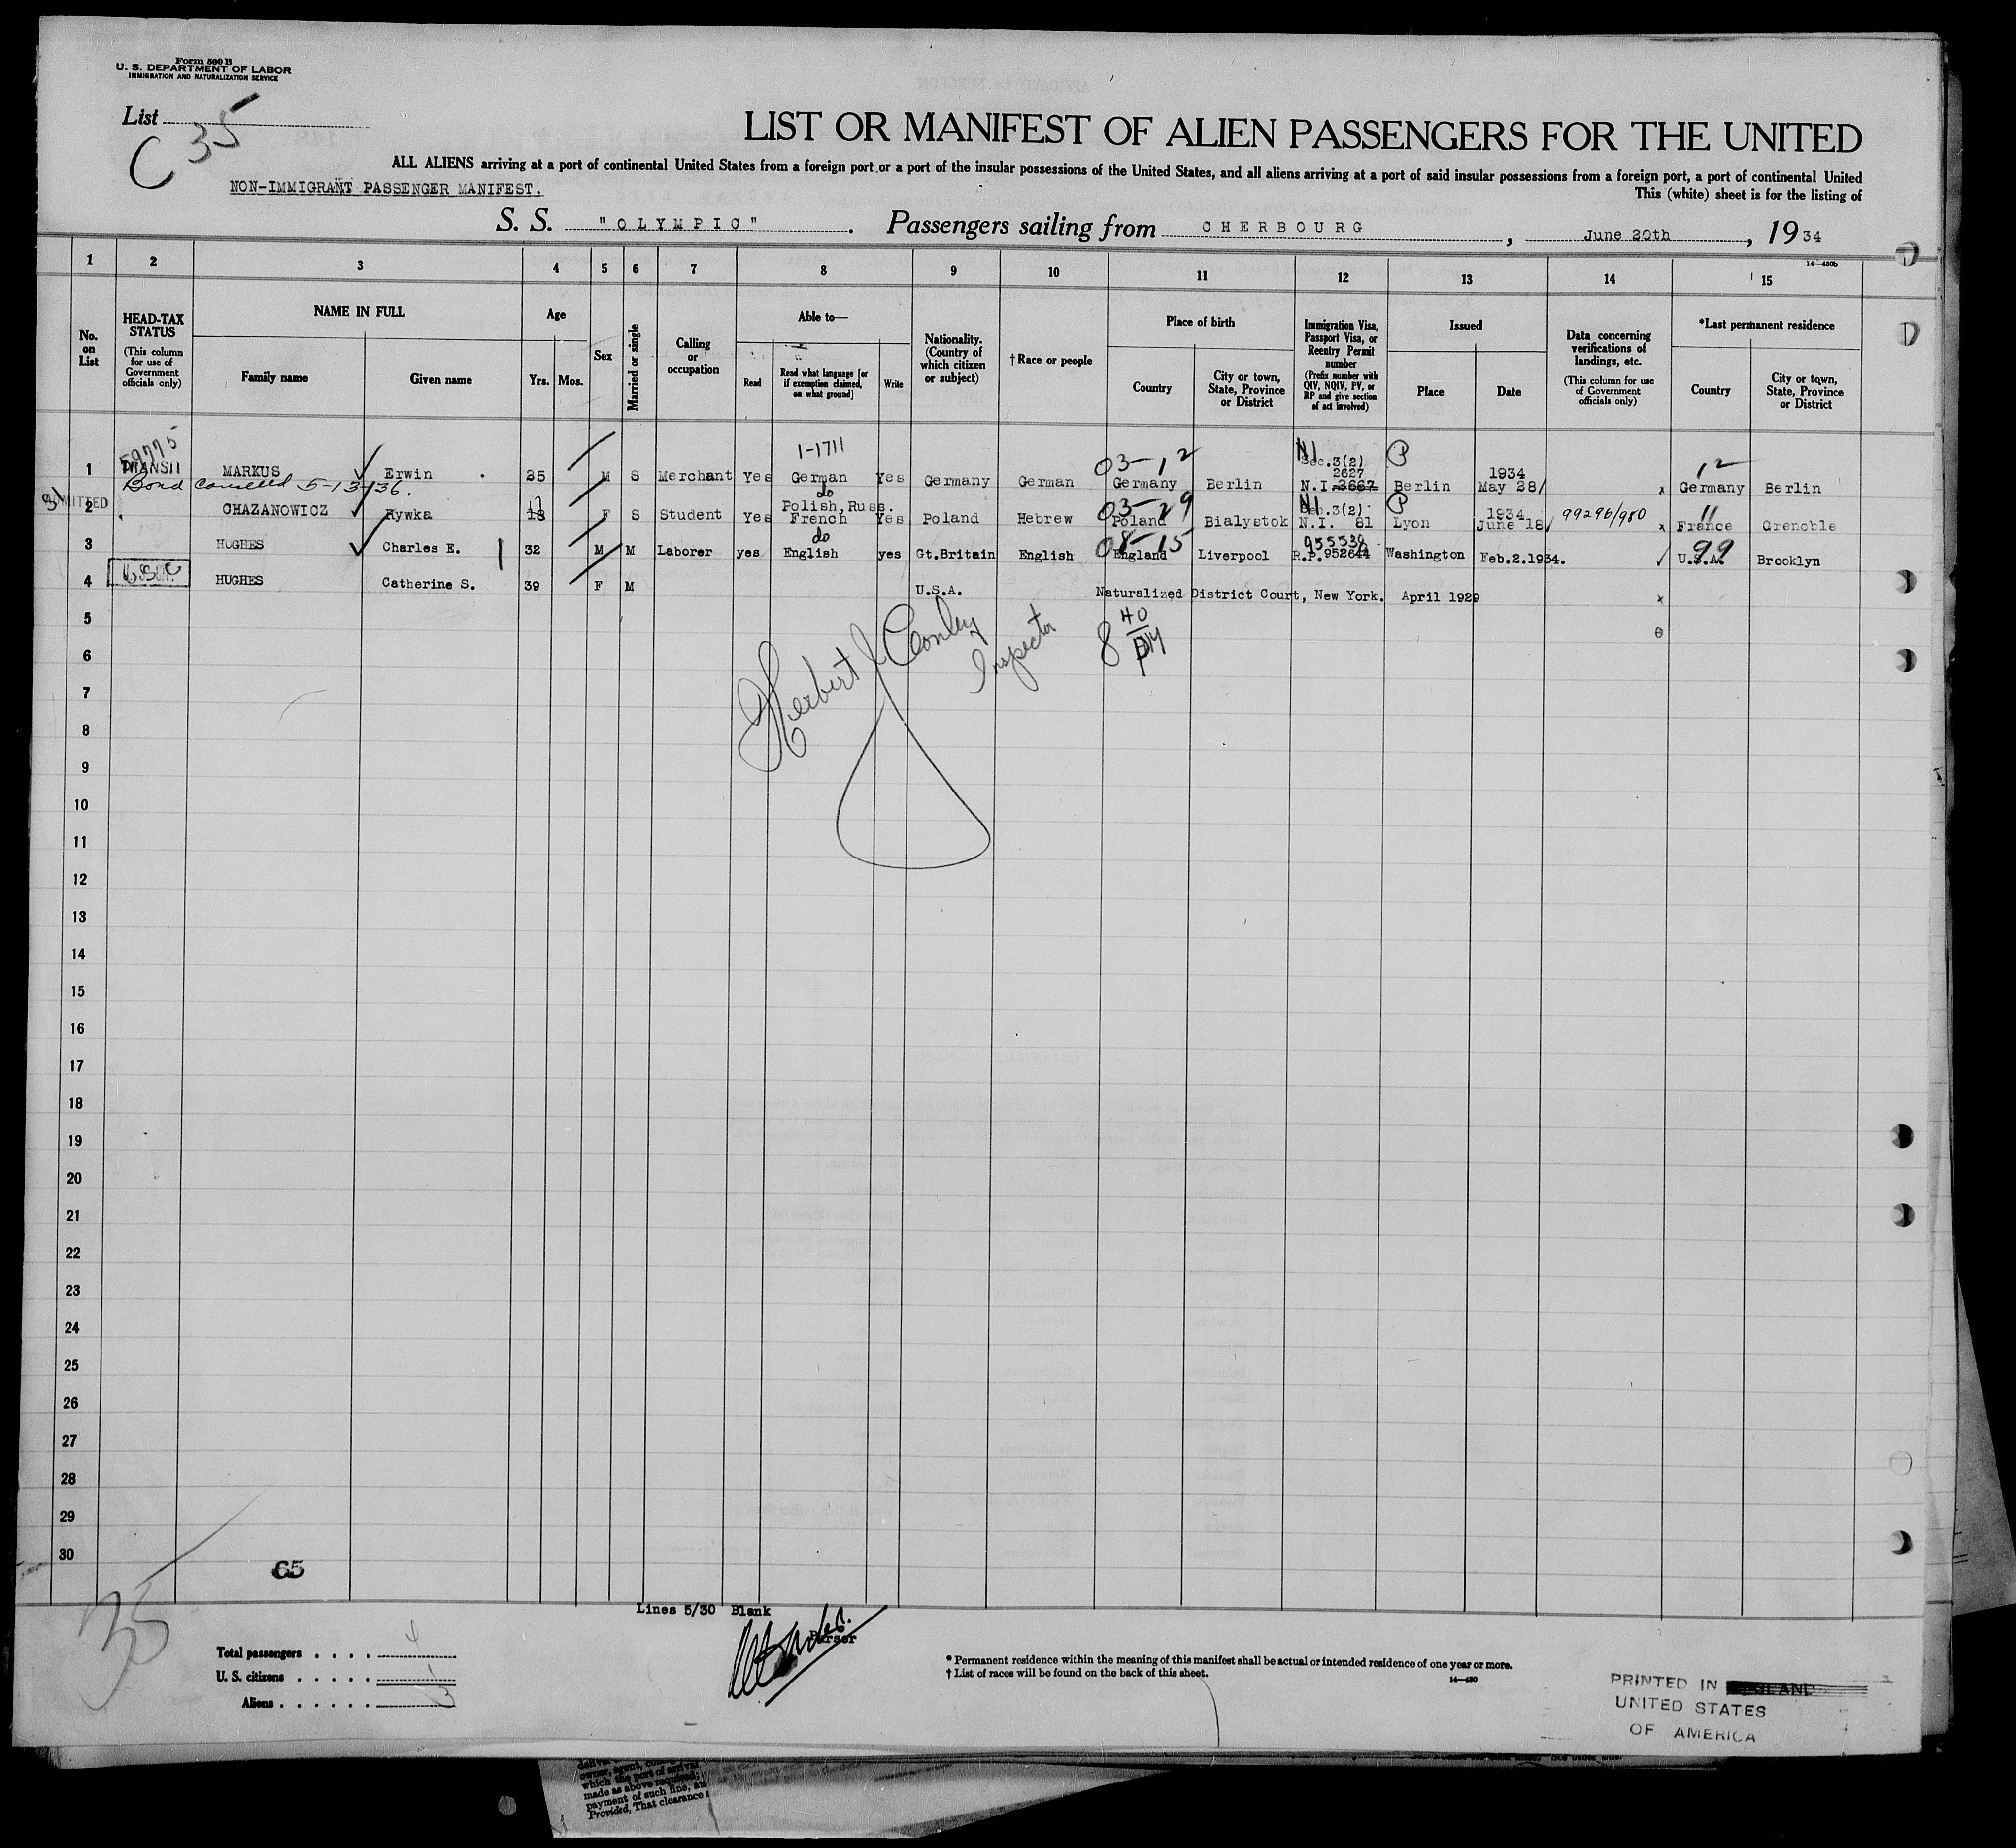 Form 500 B
U. S. DEPARTMENT OF LABOR
IMMIGRATION AND NATURALIZATION SERVICE
List
C 35
LIST OR MANIFEST OF ALIEN PASSENGERS FOR THE UNITED
ALL ALIENS arriving at a port of continental United States from a foreign port or a port of the insular possessions of the United States, and all aliens arriving at a port of said insular possessions from a foreign port, a port of continental United
NON-IMMIGRANT PASSENGER MANIFEST.
This (white) sheet is for the listing of
S. S. "OLYMPIC". Passengers sailing from CHERBOURG, June 20th, 1934
14—430b
1 2 3 4 5 6 7 8 9 10 11 12 13 14 15
No. on List
HEAD-TAX STATUS
(This column for use of Government officials only)
NAME IN FULL
Family name
Given name
Age
Yrs. Mos.
Sex
Married or single
Calling or occupation
Able to—
Read
Read what language [or if exemption claimed, on what ground]
Write
Nationality. (Country of which citizen or subject)
†Race or people
Place of birth
Country
City or town, State, Province or District
Immigration Visa, Passport Visa, or Reentry Permit number
(Prefix number with QIV, NQIV, PV, or RP and give section of act involved)
Issued
Place
Date
Data concerning verifications of landings, etc.
(This column for use of Government officials only)
*Last permanent residence
Country
City or town, State, Province or District
59775 1-1711 03-12 NI Sec.3(2) P 1934 12
1 TRANSIT MARKUS Erwin 35 M S Merchant Yes German Yes Germany German Germany Berlin 2627 N.I. 3667 Berlin May 28/ x Germany Berlin
Bond cancelled 5-13-36.
ADMITTED do 03-29 NI Sec.3(2). P 1934 11
2 CHAZANOWICZ Rywka 17 18 F S Student Yes Polish, Russ. French Yes Poland Hebrew Poland Bialystok N.I. 81 Lyon June 18/ 99296/980 x France Grenoble
do 08-15 955539 99
3 HUGHES Charles E. 32 M M Laborer yes English yes Gt.Britain English England Liverpool R.P.952644 Washington Feb.2.1934. U.S.A. Brooklyn
4 HUGHES Catherine S. 39 F M U.S.A. Naturalized District Court, New York. April 1929 x
5
6
7
8
9
10
11
12
13
14
15
16
17
18
19
20
21
22
23
24
25
26
27
28
29
30
Herbert J Conley
Inspector
8 40 PM
65
35
Lines 5/30 Blank
Purser
Total passengers 4
U. S. citizens 1
Aliens 3
* Permanent residence within the meaning of this manifest shall be actual or intended residence of one year or more.
† List of races will be found on the back of this sheet.
14—430
PRINTED IN
UNITED STATES
OF AMERICA
owner, agent,
which the port of arrival
made as above required;
payment of such fine,
Provided, That clearance